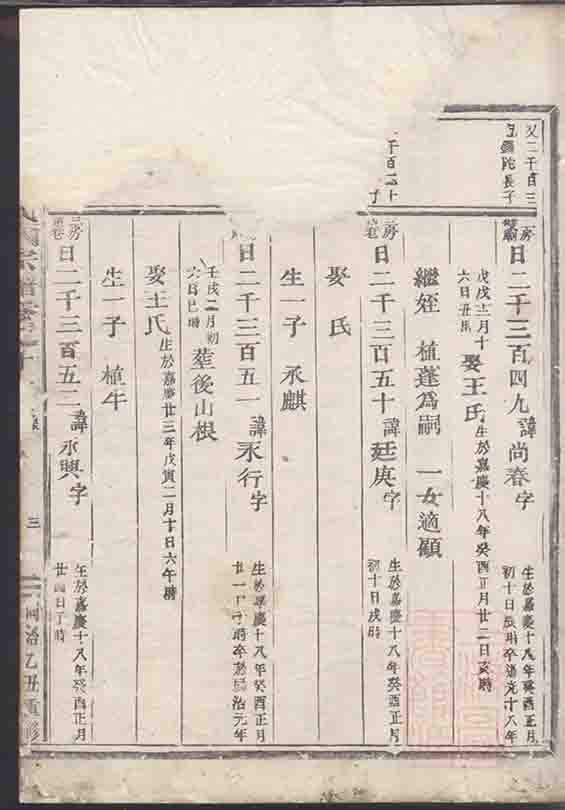 又二千百三
長子
千百二十
子
房
曰二千三百四九諱尚春字
生於嘉慶十八年癸酉正月
初十日辰時卒道光十八年
戊戌十二月十
六日丑時
娶王氏
生於嘉慶十八年癸酉正月廿二日亥時
繼姪 植蓬為嗣 一女適顧
房
曰二千三百五十諱廷庚字
生於嘉慶十八年癸酉正月
初十日戌時
娶氏
生一子 永麒
曰二千三百五一諱永行字
生於嘉慶十八年癸酉正月
廿一日子時卒於同治元年
壬戌二月初
六日巳時
塟後山根
娶王氏
生於嘉慶廿三年戊寅二月十日六午時
生一子 植牛
房
曰二千三百五二諱永興字
生於嘉慶十八年癸酉正月
廿四日子時
宗譜卷之十
三
同治乙丑重修